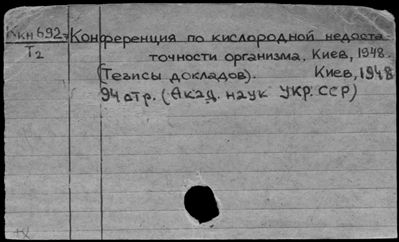 Ккн 692 Конференция по кислородной недоста
Т2 точности организма. Киев, 1948.
(Тезисы докладов). Киев, 1948
94 стр. (Акад. наук УКР. ССР)